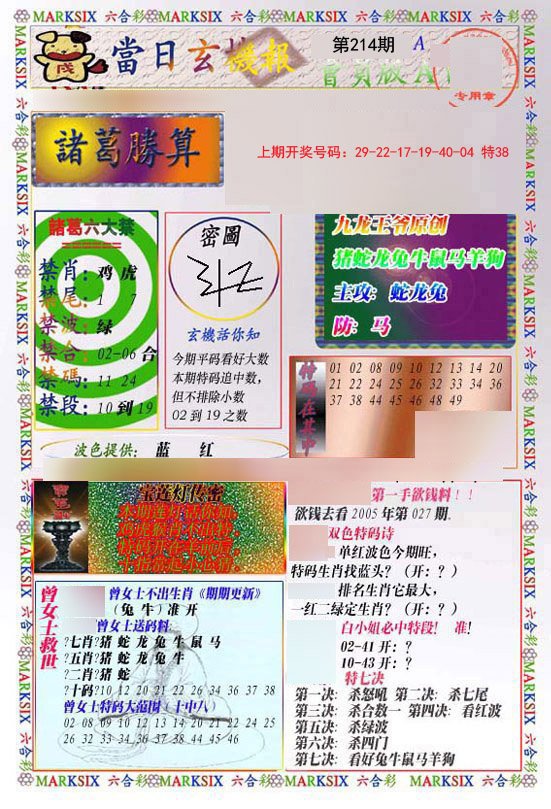 MARKSIX 六合彩 MARKSIX 六合彩 MARKSIX 六合彩 MARKSIX 六合彩
當日玄機報
第214期
A
专用章
諸葛勝算
上期开奖号码：29-22-17-19-40-04 特38
諸葛六大禁
禁肖：鸡虎
禁尾：1 7
禁波：绿
禁合：02-06合
禁碼：11 24
禁段：10到19
密圖
玄機話你知
今期平码看好大数
本期特码追中数，
但不排除小数
02到19之数
九龙王爷原创
猪蛇龙兔牛鼠马羊狗
主攻：蛇龙兔
防：马
特码在其中
01 02 08 09 10 12 13 14 20
21 22 24 25 26 32 33 34 36
37 38 44 45 46 48 49
波色提供： 蓝 红
宝莲灯传密
第一手欲钱料！！
欲钱去看2005年第027期.
双色特码诗
单红波色今期旺，
特码生肖找蓝头？（开：？）
排名生肖它最大，
一红二绿定生肖？（开：？）
白小姐必中特段！ 准！
02-41开：？
10-43开：？
特七决
第一决：杀怒吼 第二决：杀七尾
第三决：杀合数一 第四决：看红波
第五决：杀绿波
第六决：杀四门
第七决：看好兔牛鼠马羊狗
曾女士救世
曾女士不出生肖《期期更新》
（兔牛）准开
曾女士送码料
?七肖?猪蛇龙兔牛鼠马
?五肖?猪蛇龙兔牛
?二肖?猪蛇
?十码?10 12 20 21 22 26 34 36 37 38
曾女士特码大范围（十中八）
02 08 09 10 12 13 14 20 21 22 24 25
26 32 33 34 36 37 38 44 45 46
MARKSIX 六合彩 MARKSIX 六合彩 MARKSIX 六合彩 MARKSIX 六合彩